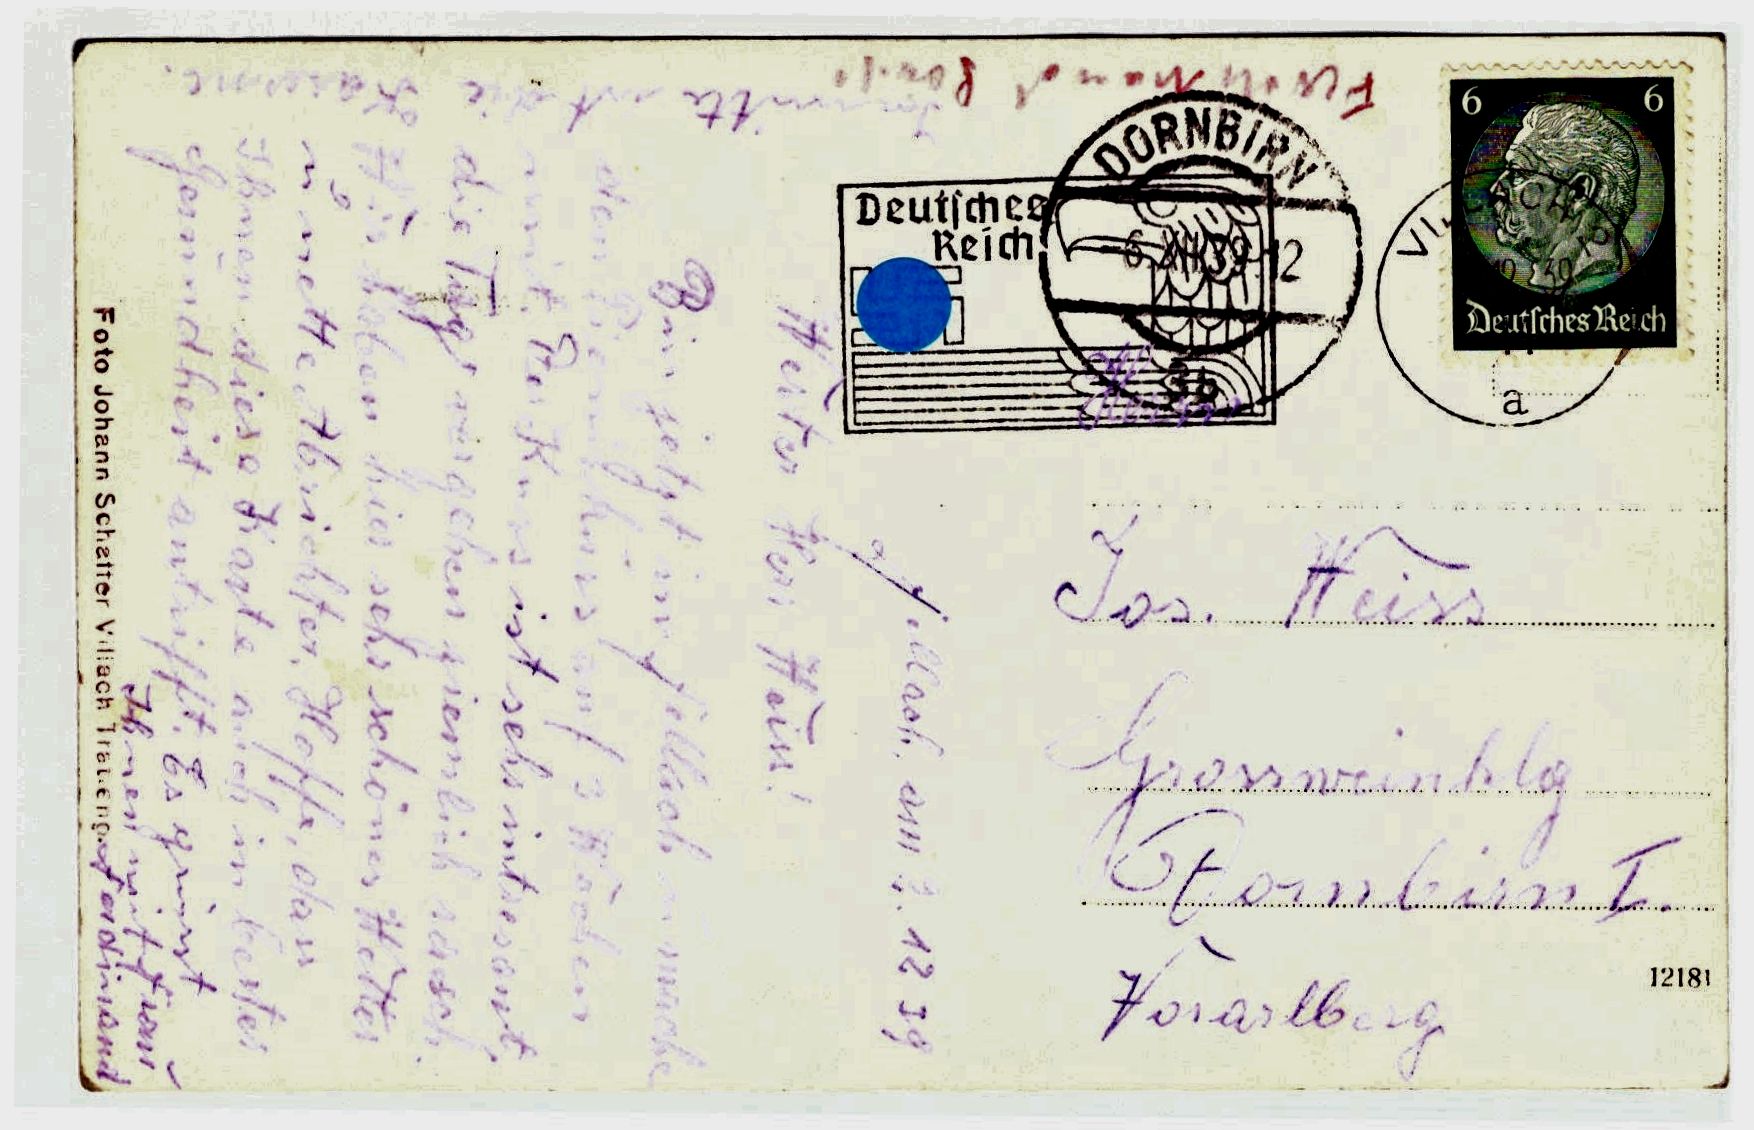 Villach, am 3. 12 39
Werter Herr Hein!
Bin jetzt in Villach u. mache
den Pionierkurs auf 3 Wochen
mit. Der Kurs ist sehr intresant,
die Tage vergehen ziemlich rasch.
Wir haben hier sehr schönes Wetter
u. nette Abrichter. Hoffe, dass
Ihnen diese Karte auch in bester
Gesundheit antrifft. Es grüsst
Ihnen mit Frau
Ferdinand
ist die
Kaserne.
Foto Johann Schatter Villach
Deutsches
Reich
DORNBIRN
6.XII.39.12
3b
6 6
Deutsches Reich
a
Herrn
Jos. Weiss
Grossweinhdlg
Dornbirn I.
Vorarlberg
12181